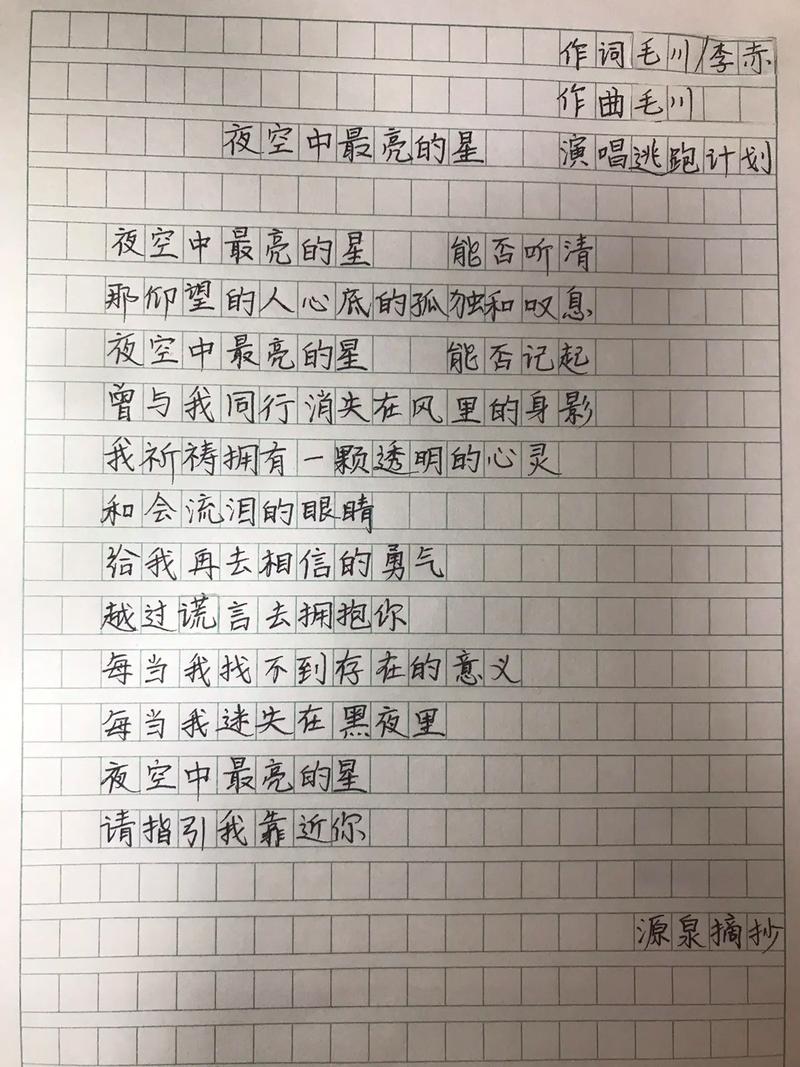 作词毛川/李赤
作曲毛川
夜空中最亮的星 演唱逃跑计划
夜空中最亮的星 能否听清
那仰望的人心底的孤独和叹息
夜空中最亮的星 能否记起
曾与我同行消失在风里的身影
我祈祷拥有一颗透明的心灵
和会流泪的眼睛
给我再去相信的勇气
越过谎言去拥抱你
每当我找不到存在的意义
每当我迷失在黑夜里
夜空中最亮的星
请指引我靠近你
源泉摘抄